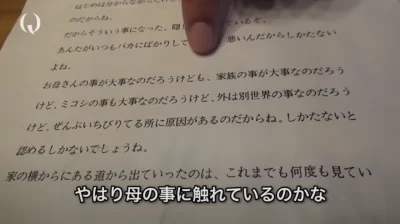 はじめは分からなかったけど
のだからね。
だからそういう事になった。隠し
あんたがいつもバカにばかりして 悪いんだからしかたない
よね。
お母さんの事が大事なのだろうけども、家族の事が大事なのだろう
けど、ミコシの事も大事なのだろうけど、外は別世界の事なのだろう
けど、ぜんぶいちびりてる所に原因があるのだからね。しかたないと
認めるしかないでしょうね。
家の横からにある道から出ていったのは、これまでも何度も見てい
やはり母の事に触れているのかな